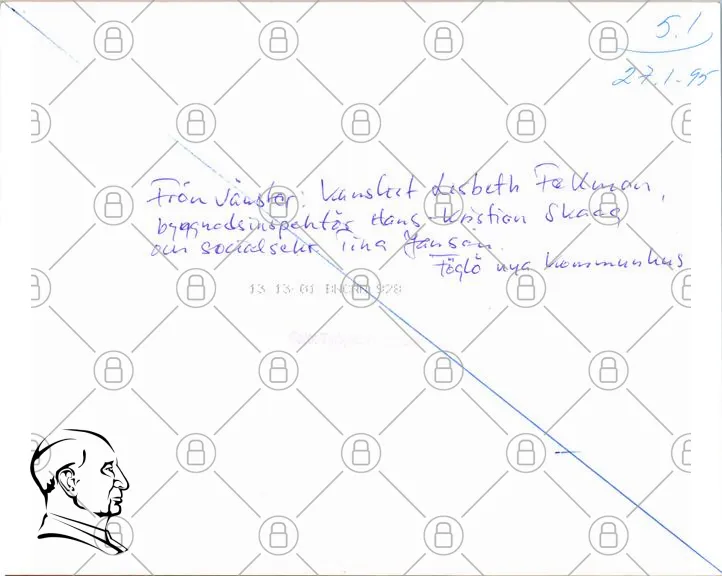 5.1
27.1-95
Från vänster: kanslist Lisbeth Fellman,
byggnadsinspektör Hans-Kristian Skaag
och socialsekr. Tina Jansén.
Föglö nya kommunhus
13 13 01 NNNN 928